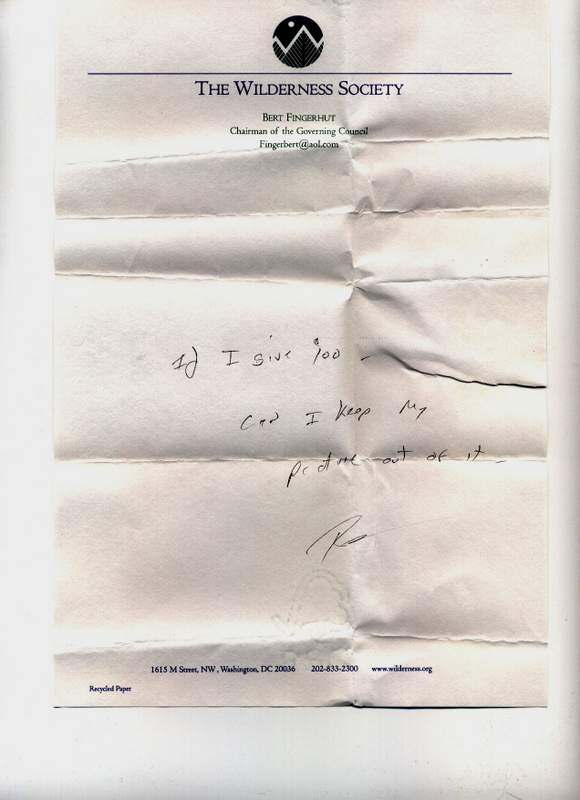 THE WILDERNESS SOCIETY
BERT FINGERHUT
Chairman of the Governing Council
Fingerbert@aol.com
If I give $100 -
can I keep my
picture out of it -
1615 M Street, NW, Washington, DC 20036 202-833-2300 www.wilderness.org
Recycled Paper